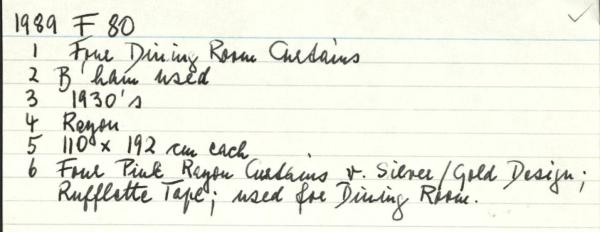 1989 F 80
1 Four Dining Room Curtains
2 B'ham used
3 1930's
4 Rayon
5 110 x 192 cm each
6 Four Pink Rayon Curtains v. Silver/Gold Design;
Rufflette Tape; used for Dining Room.